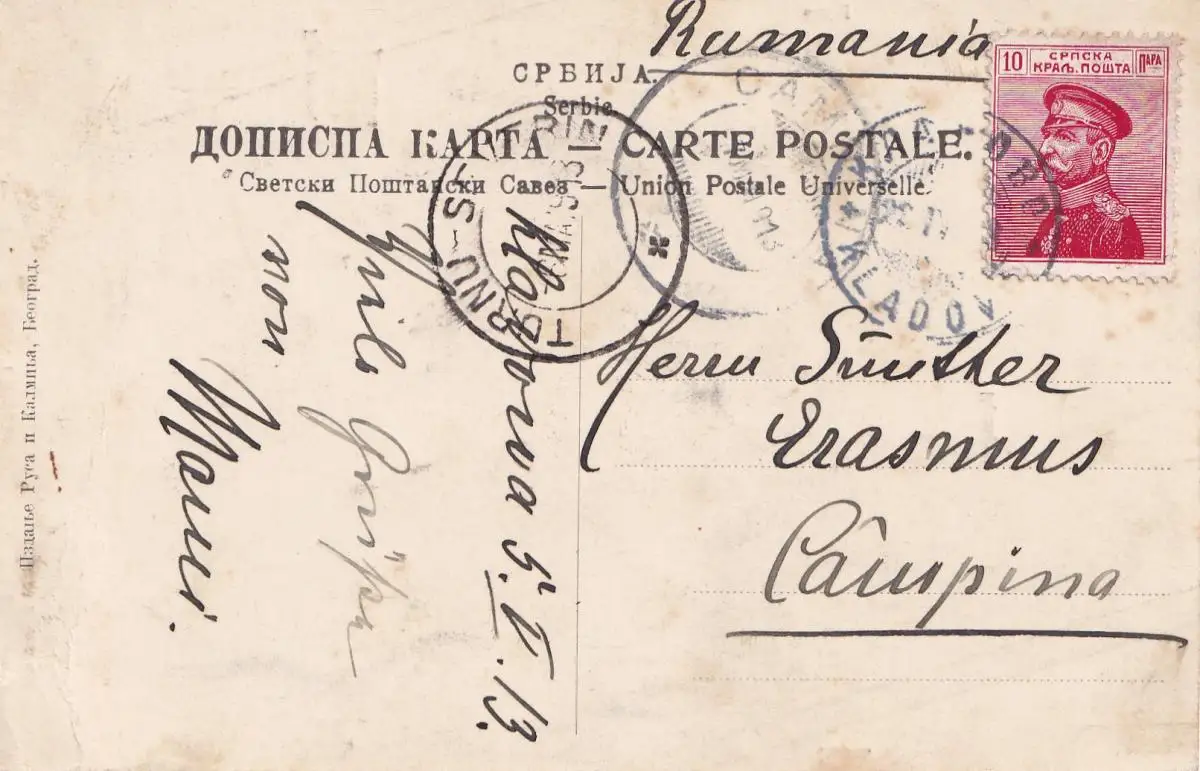 Rumania
10 СРПСКА ПАРА
КРАЉ. ПОШТА
СРБИЈА.
Serbie
ДОПИСНА КАРТА — CARTE POSTALE.
Светски Поштански Савез — Union Postale Universelle.
TURNU SEVERIN
CAM
КЛАДОВО
KLADOVO
Herrn Günther
Erasmus
Câmpina
Kladova 5. V. 13.
Viele Grüße
von
Mami.
Издање Руса и Калмића, Београд.